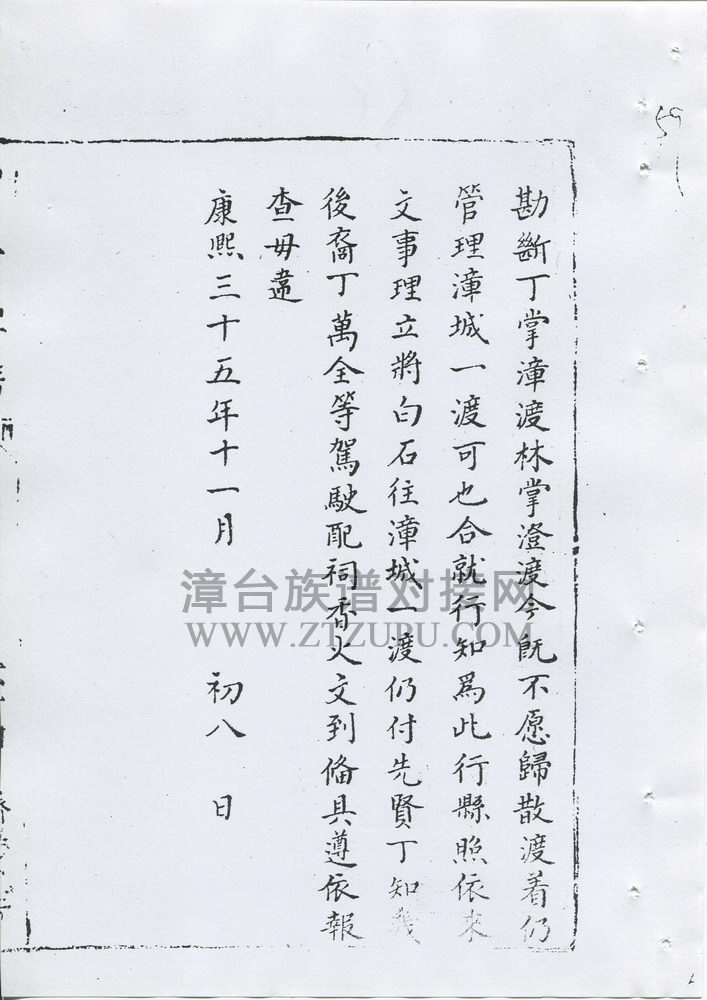 勘斷丁掌漳渡林掌澄渡今既不愿歸散渡着仍
管理漳城一渡可也合就行知爲此行縣照依來
文事理立將白石往漳城一渡仍付先賢丁知幾
後裔丁萬全等駕駛配祠香火文到偹具遵依報
查毋違
康熙三十五年十一月 初八 日
59
漳台族谱对接网
WWW.ZTZUPU.COM